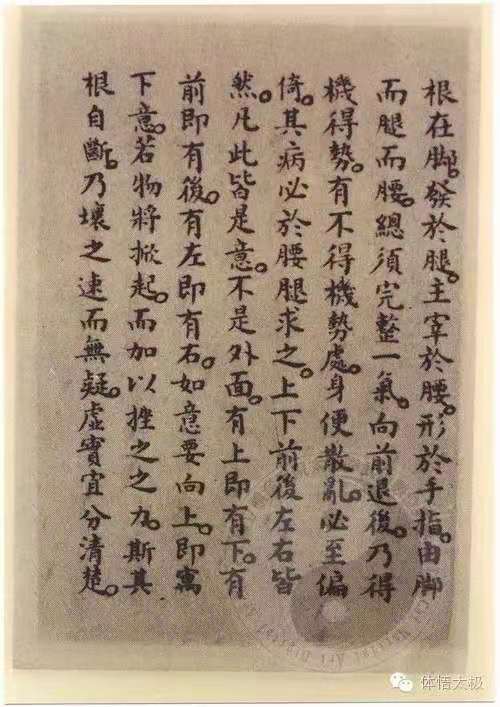 根在脚。發於腿。主宰於腰。形於手指。由脚
而腿而腰。總須完整一氣。向前退後。乃得
機得勢。有不得機勢處。身便散亂。必至偏
倚。其病必於腰腿求之。上下前後左右皆
然。凡此皆是意。不是外面。有上即有下。有
前即有後。有左即有右。如意要向上。即寓
下意。若物將掀起。而加以挫之之力。斯其
根自斷。乃壞之速而無疑。虛實宜分清楚。
体悟太极